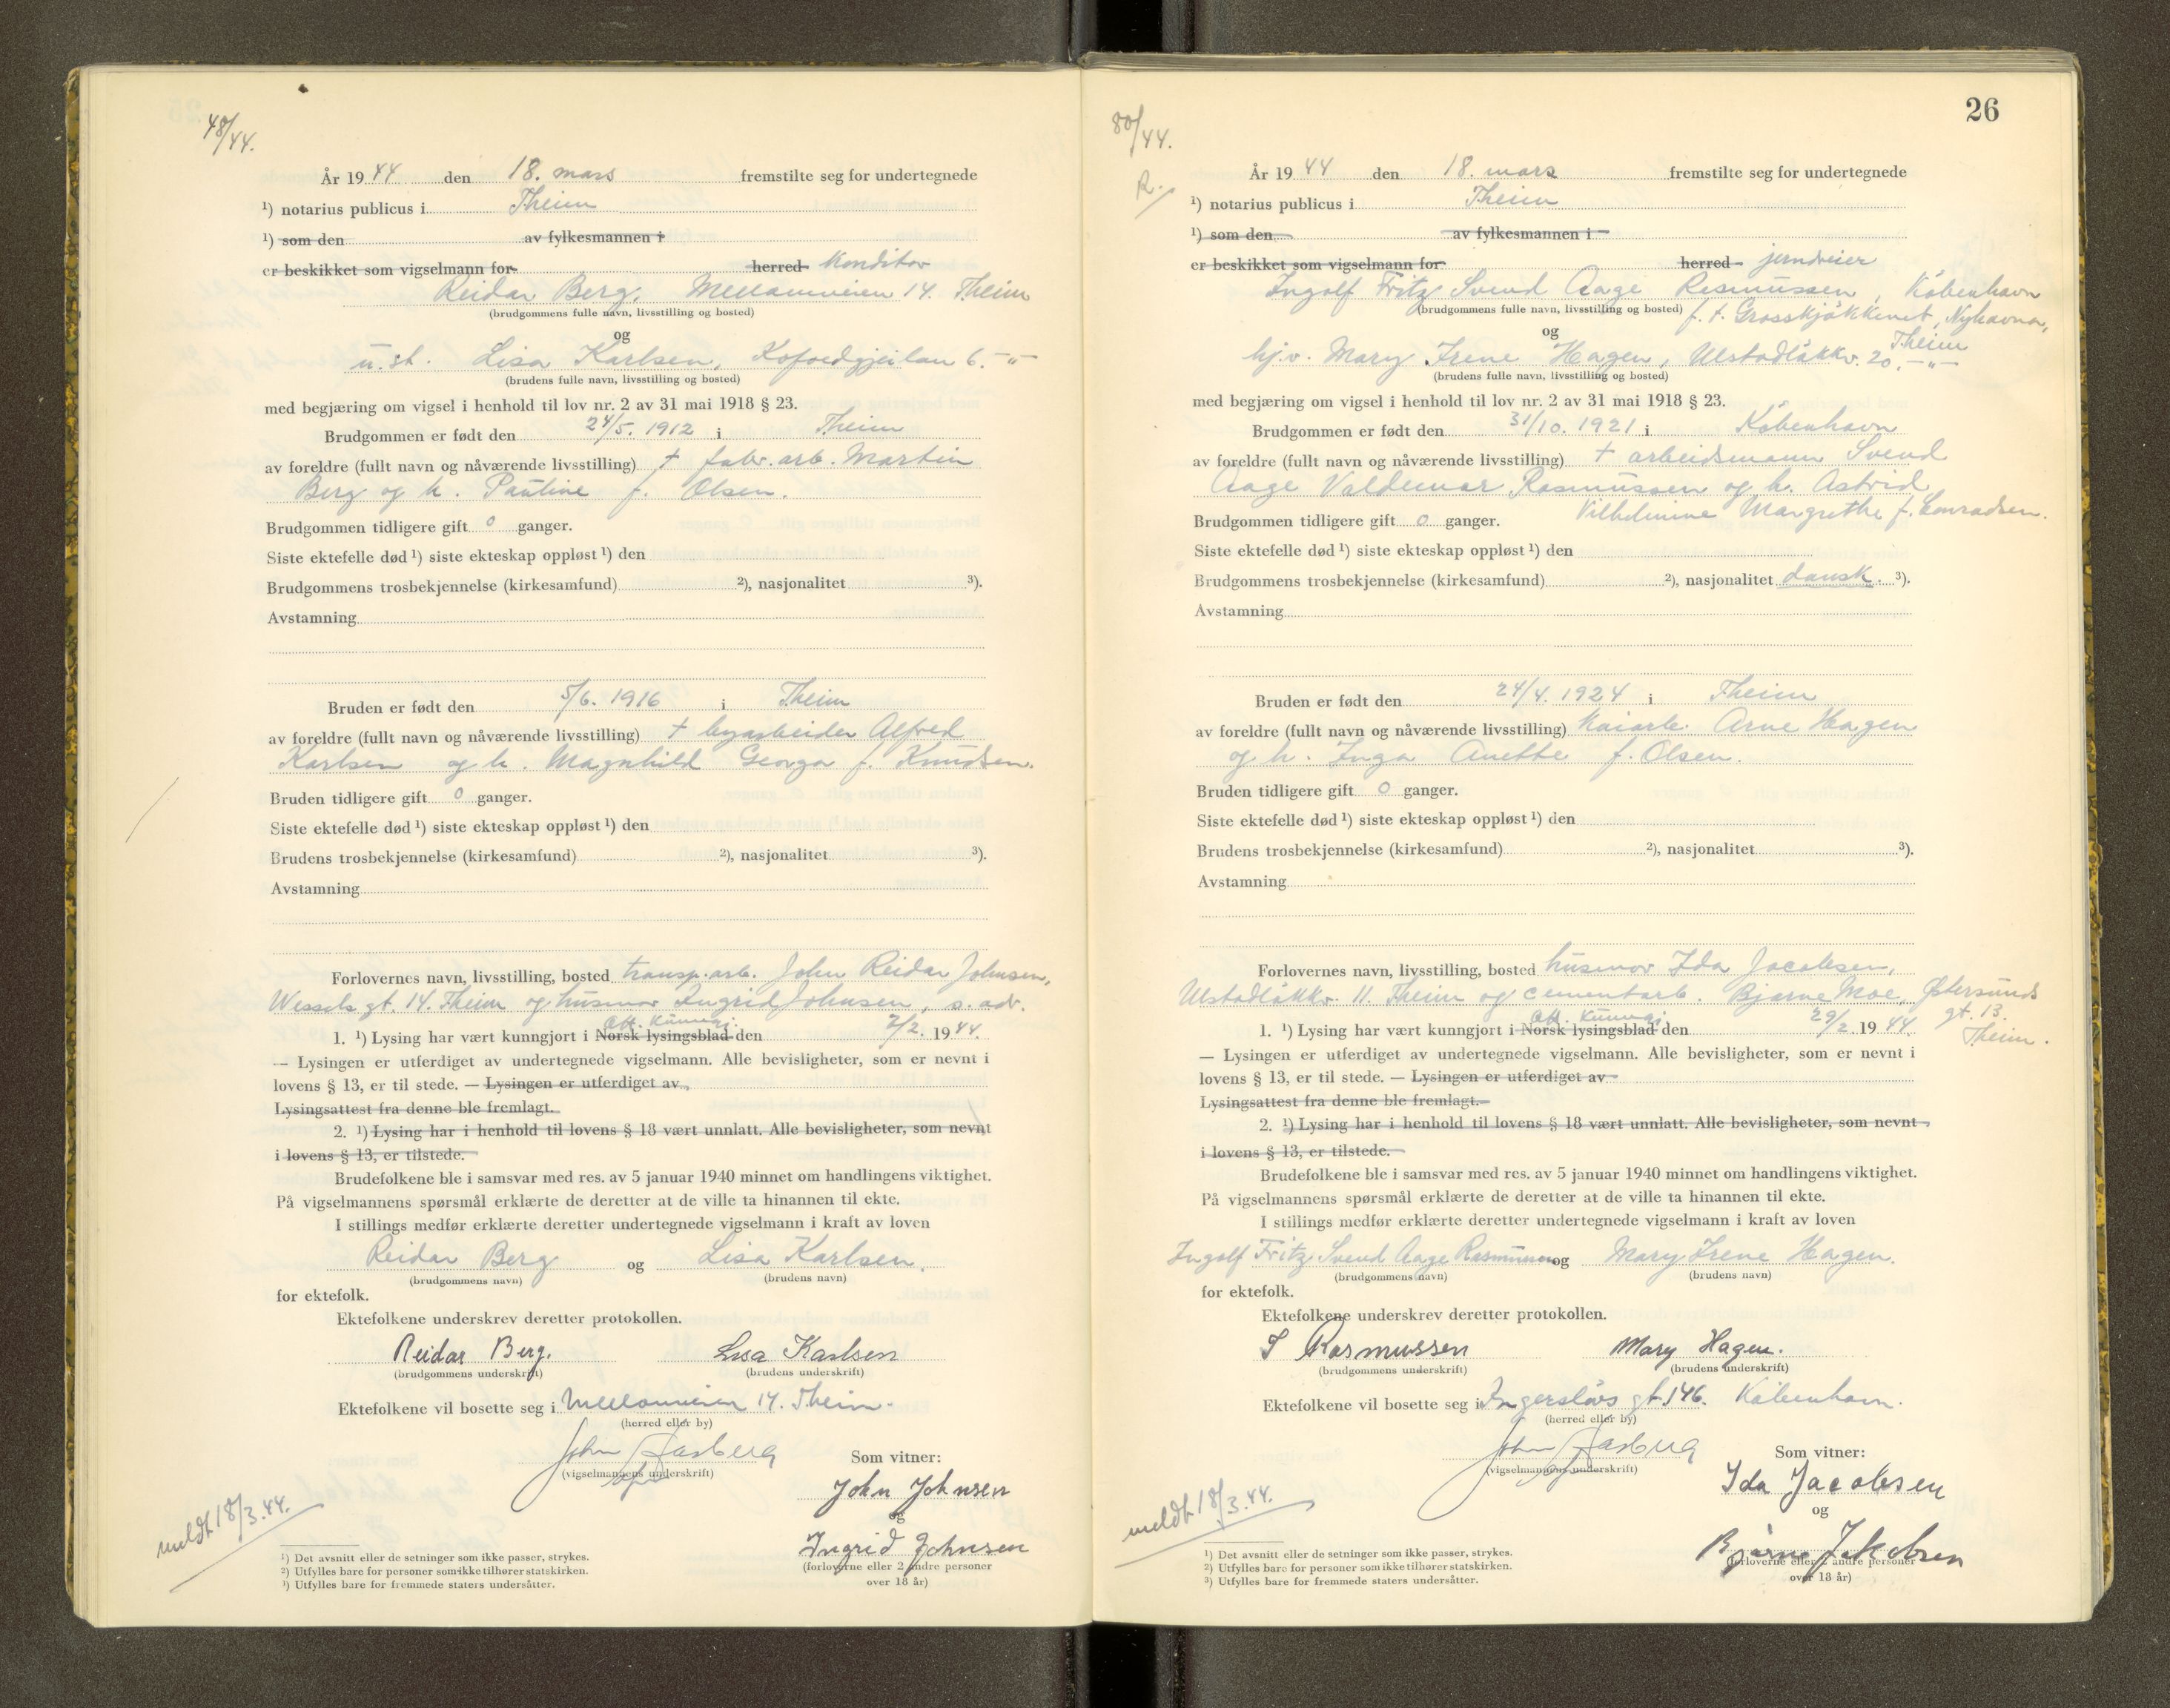 48/44.
År 19 44 den 18. mars fremstilte seg for undertegnede
¹) notarius publicus i Theim
¹) som den av fylkesmannen i
er beskikket som vigselmann for herred konditor
Reidar Berg, Mellomveien 14. Theim
(brudgommens fulle navn, livsstilling og bosted)
og
u.st. Lisa Karlsen, Kofoedgjeilan 6. -"-
(brudens fulle navn, livsstilling og bosted)
med begjæring om vigsel i henhold til lov nr. 2 av 31 mai 1918 § 23.
Brudgommen er født den 24/5. 1912 i Theim
av foreldre (fullt navn og nåværende livsstilling) † fabr. arb. Martin
Berg og h. Pauline f. Olsen.
Brudgommen tidligere gift 0 ganger.
Siste ektefelle død ¹) siste ekteskap oppløst ¹) den
Brudgommens trosbekjennelse (kirkesamfund) ²), nasjonalitet ³).
Avstamning
Bruden er født den 5/6. 1916 i Theim
av foreldre (fullt navn og nåværende livsstilling) † byarbeider Alfred
Karlsen og h. Magnhild Georga f. Knudsen.
Bruden tidligere gift 0 ganger.
Siste ektefelle død ¹) siste ekteskap oppløst ¹) den
Brudens trosbekjennelse (kirkesamfund) ²), nasjonalitet ³).
Avstamning
Forlovernes navn, livsstilling, bosted transp. arb. John Reidar Johnsen,
Wessels gt. 14. Theim og husmor Ingrid Johnsen, s. adr.
Off. kunngj.
1. ¹) Lysing har vært kunngjort i Norsk lysingsblad den 2/2. 19 44.
— Lysingen er utferdiget av undertegnede vigselmann. Alle bevisligheter, som er nevnt i
lovens § 13, er til stede. — Lysingen er utferdiget av
Lysingsattest fra denne ble fremlagt.
2. ¹) Lysing har i henhold til lovens § 18 vært unnlatt. Alle bevisligheter, som nevnt
i lovens § 13, er tilstede.
Brudefolkene ble i samsvar med res. av 5 januar 1940 minnet om handlingens viktighet.
På vigselmannens spørsmål erklærte de deretter at de ville ta hinannen til ekte.
I stillings medfør erklærte deretter undertegnede vigselmann i kraft av loven
Reidar Berg og Lisa Karlsen.
(brudgommens navn) (brudens navn)
for ektefolk.
Ektefolkene underskrev deretter protokollen.
Reidar Berg. Lisa Karlsen
(brudgommens underskrift) (brudens underskrift)
Ektefolkene vil bosette seg i Mellomveien 14. Theim.
(herred eller by)
John Aasberg
(vigselmannens underskrift)
Som vitner:
John Johnsen
og
Ingrid Johnsen
(forloverne eller 2 andre personer
over 18 år)
meldt 18/3.44.
¹) Det avsnitt eller de setninger som ikke passer, strykes.
²) Utfylles bare for personer som ikke tilhører statskirken.
³) Utfylles bare for fremmede staters undersåtter.
26
80/44.
R.
År 19 44 den 18. mars fremstilte seg for undertegnede
¹) notarius publicus i Theim
¹) som den av fylkesmannen i
er beskikket som vigselmann for herred jerndreier
Ingolf Fritz Svend Aage Rasmussen, København
(brudgommens fulle navn, livsstilling og bosted) f. t. Grosskjøkkenet, Nyhavna,
og Theim
hj.v. Mary Irene Hagen, Ulstadløkkv. 20. -"-
(brudens fulle navn, livsstilling og bosted)
med begjæring om vigsel i henhold til lov nr. 2 av 31 mai 1918 § 23.
Brudgommen er født den 31/10. 1921 i København
av foreldre (fullt navn og nåværende livsstilling) † arbeidsmann Svend
Aage Valdemar Rasmussen og h. Astrid
Vilhelmine Margrethe f. Conradsen.
Brudgommen tidligere gift 0 ganger.
Siste ektefelle død ¹) siste ekteskap oppløst ¹) den
Brudgommens trosbekjennelse (kirkesamfund) ²), nasjonalitet dansk. ³).
Avstamning
Bruden er født den 24/4. 1924 i Theim
av foreldre (fullt navn og nåværende livsstilling) Kaiarb. Arne Hagen
og h. Inga Anette f. Olsen.
Bruden tidligere gift 0 ganger.
Siste ektefelle død ¹) siste ekteskap oppløst ¹) den
Brudens trosbekjennelse (kirkesamfund) ²), nasjonalitet ³).
Avstamning
Forlovernes navn, livsstilling, bosted husmor Ida Jacobsen,
Ulstadløkkv. 11. Theim og cementarb. Bjarne Moe, Østersunds
gt. 13.
Theim.
Off. kunngj.
1. ¹) Lysing har vært kunngjort i Norsk lysingsblad den 29/2. 19 44.
— Lysingen er utferdiget av undertegnede vigselmann. Alle bevisligheter, som er nevnt i
lovens § 13, er til stede. — Lysingen er utferdiget av
Lysingsattest fra denne ble fremlagt.
2. ¹) Lysing har i henhold til lovens § 18 vært unnlatt. Alle bevisligheter, som nevnt
i lovens § 13, er tilstede.
Brudefolkene ble i samsvar med res. av 5 januar 1940 minnet om handlingens viktighet.
På vigselmannens spørsmål erklærte de deretter at de ville ta hinannen til ekte.
I stillings medfør erklærte deretter undertegnede vigselmann i kraft av loven
Ingolf Fritz Svend Aage Rasmussen og Mary Irene Hagen.
(brudgommens navn) (brudens navn)
for ektefolk.
Ektefolkene underskrev deretter protokollen.
I Rasmussen Mary Hagen.
(brudgommens underskrift) (brudens underskrift)
Ektefolkene vil bosette seg i Ingersløvs gt. 146. København.
(herred eller by)
John Aasberg
(vigselmannens underskrift)
Som vitner:
Ida Jacobsen
og
Bjarne Jakobsen
(forloverne eller 2 andre personer
over 18 år)
meldt 18/3.44.
¹) Det avsnitt eller de setninger som ikke passer, strykes.
²) Utfylles bare for personer som ikke tilhører statskirken.
³) Utfylles bare for fremmede staters undersåtter.